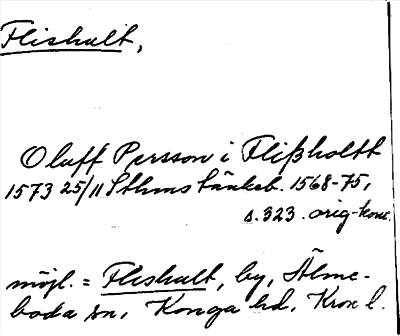 Flishult,
Oluff Persson i Flißholtt
1573 25/11 Sthms tänkeb. 1568-75,
s. 323. orig-konc.
möjl. = Flishult, by, Älme-
boda sn, Konga hd, Kron l.